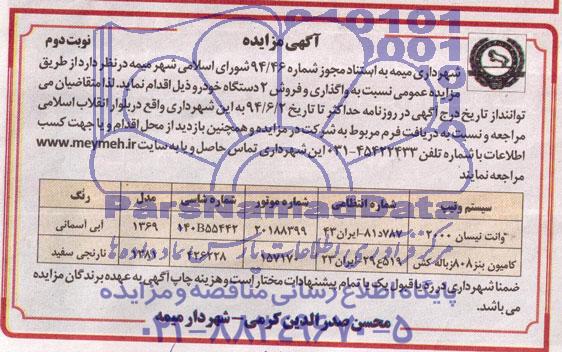 آگهی مزایده
نوبت دوم
شهرداری میمه به استناد مجوز شماره ۹۴/۴۶ شورای اسلامی شهر میمه در نظر دارد از طریق
مزایده عمومی نسبت به واگذاری و فروش ۲ دستگاه خودرو ذیل اقدام نماید. لذا متقاضیان می
توانند از تاریخ درج آگهی در روزنامه حداکثر تا تاریخ ۹۴/۶/۲ به این شهرداری واقع در بلوار انقلاب اسلامی
مراجعه و نسبت به دریافت فرم مربوط به شرکت در مزایده و همچنین بازدید از محل اقدام و یا جهت کسب
اطلاعات با شماره تلفن ۴۵۴۲۲۴۳۳-۰۳۱ این شهرداری تماس حاصل و یا به سایت www.meymeh.ir
مراجعه نمایند
سیستم و تیپ شماره انتظامی شماره موتور شماره شاسی مدل رنگ
وانت نیسان ۲۰۰۰ ۷۸۷د۸۱-ایران۴۳ ۲۰۱۸۸۳۹۹ ۱۴۰B۵۵۴۴۲ ۱۳۶۹ ابی آسمانی
کامیون بنز۸۰۸زباله کش ۵۱۹ع۲۹-ایران۲۳ ۴۲۶۲۲۸ ۱۳۸۱ نارنجی سفید
ضمنا شهرداری در رد یا قبول یک یا تمام پیشنهادات مختار است و هزینه چاپ آگهی به عهده برندگان مزایده
می باشد.
محسن صدرالدین کرمی - شهردار میمه
ParsNamadData
پایگاه اطلاع رسانی مناقصه و مزایده
۰۲۱-۸۸۳۴۹۶۷۰-۵